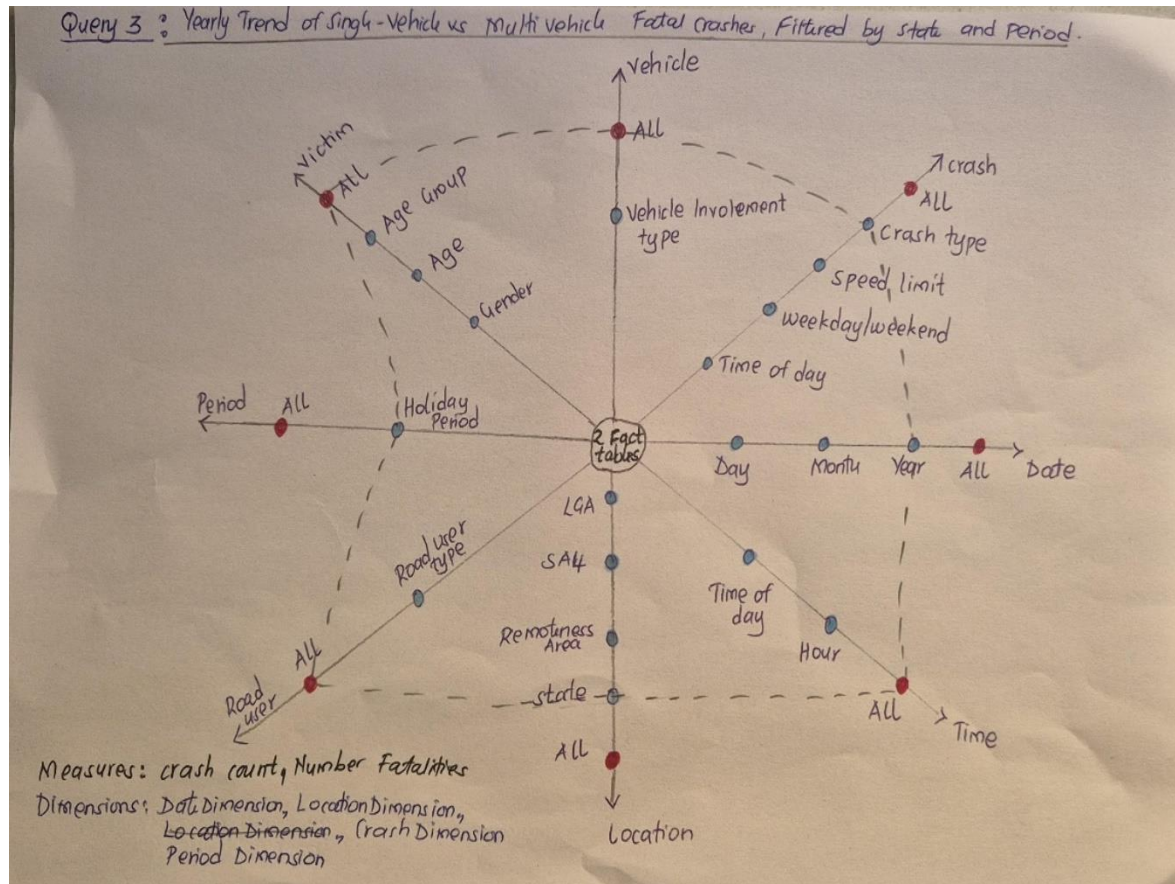 Query 3 : Yearly Trend of Singh-Vehicle vs Multi vehicle Fatal crashes, Filtured by state and Period.
vehicle
ALL
Vehicle Involement
type
Victim
ALL
Age Group
Age
Gender
crash
ALL
Crash type
Speed limit
weekday/weekend
Time of day
Period
All
Holiday
Period
2 Fact
tables
Day
Month
Year
All
Date
LGA
SA4
Remotiness
Area
state
All
Location
Time of
day
Hour
All
Time
Road user
type
All
Road
user
Measures: crash count, Number Fatalities
Dimensions: Date Dimension, Location Dimension,
Location Dimension, Crash Dimension
Period Dimension